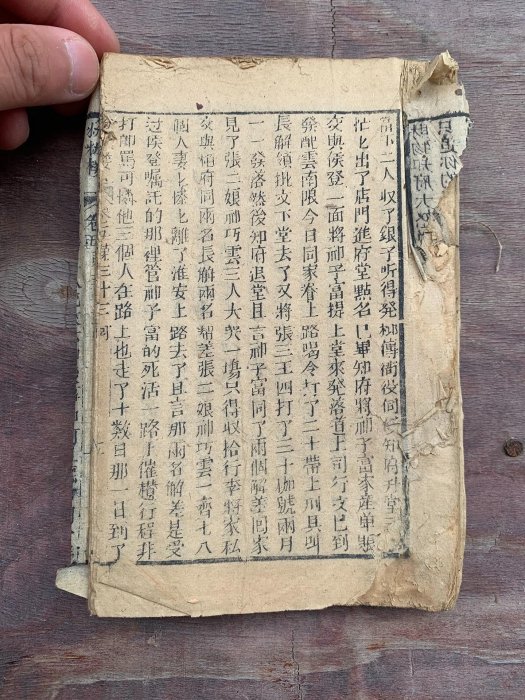 當下二人收了銀子听得發梆傳衙役伺候知府升堂三
茫匕出了店門進府堂點名已畢知府將神子富家產單賬
交與侯登一面將神子富提上堂來發落道上司行文已到
發配雲南限今日同家眷上路喝令打了二十帶上刑具叫
長解領批文下堂去了又將張三王四打了三十枷號兩月
一一發落然後知府退堂且言神子富同了兩個解差回家
見了張二娘神巧雲三人大哭一塲只得收拾行李將家私
交與栢府同兩名長解兩名幫差張二娘神巧雲一齊七八
個人凄匕慘匕離了淮安上路去了且言那兩名解差是受
过侯登囑託的那裡管神子富的死活一路上催趲行程非
打即罵可憐他三個人在路上也走了十數日那一日到了
卷五
第三十三回